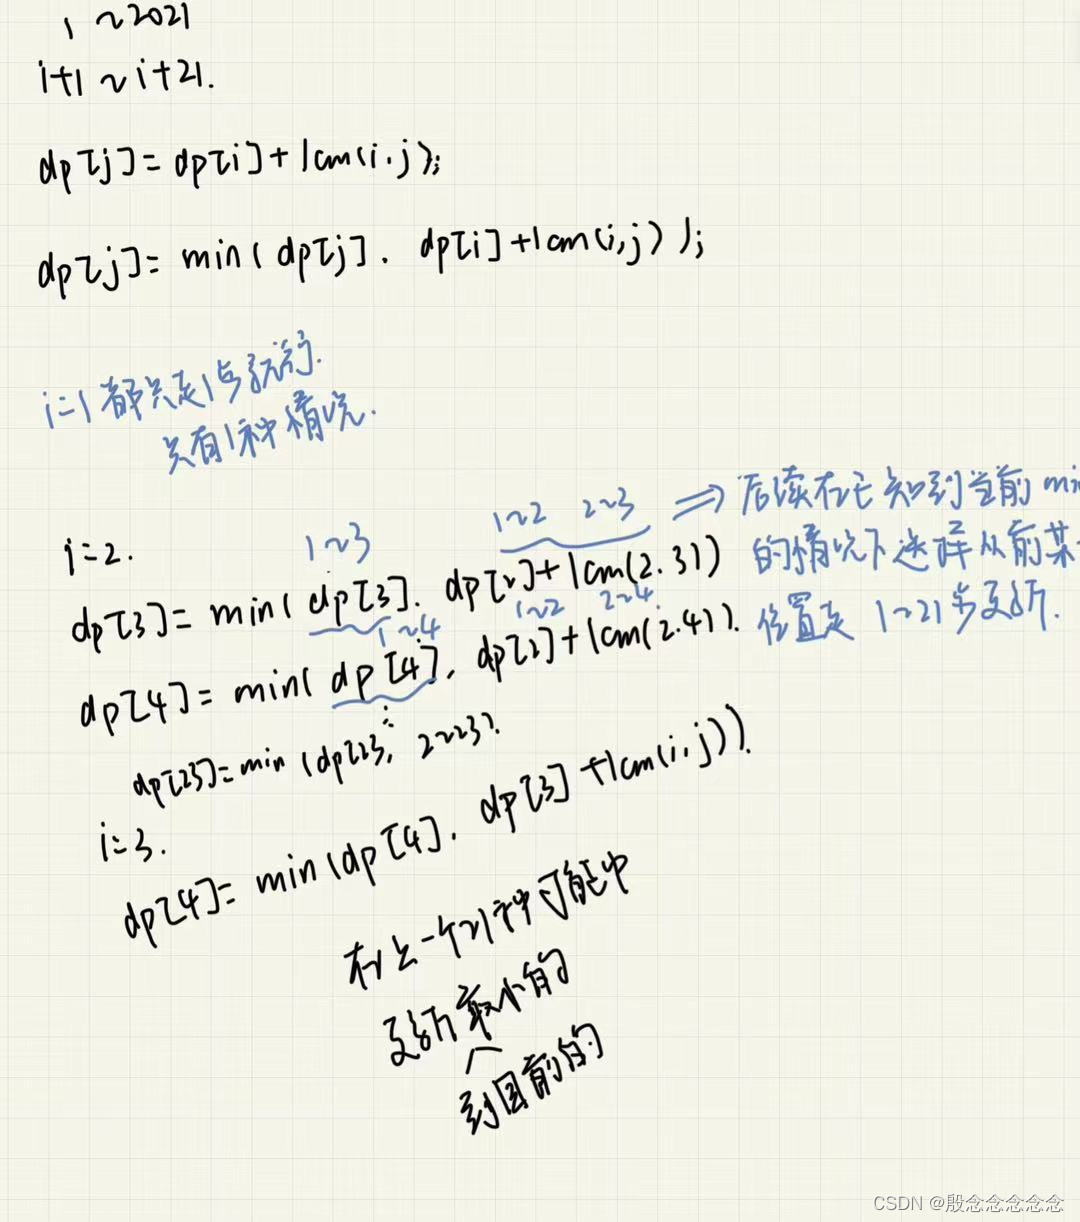 1 ~2021
i+1 ~ i+21.
dp[j]= dp[i]+lcm(i.j);
dp[j]= min( dp[j]. dp[i]+lcm(i,j) );
i=1 都只走1步就行.
只有1种情况.
1~3
1~2 2~3 ⇒ 后续在已知到当前 min
i=2.
dp[3]= min( dp[3]. dp[2]+lcm(2.3))
的情况下选择从前某
1~4 1~2 2~4
dp[4]= min( dp[4]. dp[2]+lcm(2.4)).
位置走 1~21步到
dp[23]=min (dp[23], 2~23).
i=3.
dp[4]= min(dp[4]. dp[3]+lcm(i.j)).
在上一个21种可能中
最小的
到目前的
CSDN @殷念念念念念